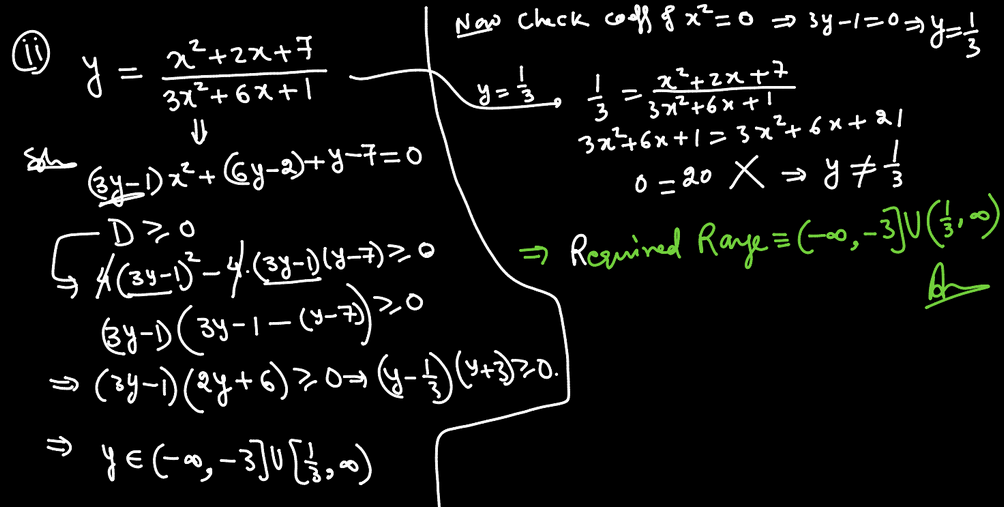 (ii) y = (x²+2x+7)/(3x²+6x+1)
⇓
Soln (3y-1)x²+(6y-2)+y-7=0
D ≥ 0
4(3y-1)² - 4·(3y-1)(y-7) ≥ 0
(3y-1)(3y-1-(y-7)) ≥ 0
⇒ (3y-1)(2y+6) ≥ 0 → (y-1/3)(y+3) ≥ 0.
⇒ y ∈ (-∞, -3] ∪ [1/3, ∞)
Now check coeff of x² = 0 ⇒ 3y-1=0 ⇒ y=1/3
y=1/3 1/3 = (x²+2x+7)/(3x²+6x+1)
3x²+6x+1 = 3x²+6x+21
0 = 20 X ⇒ y ≠ 1/3
⇒ Required Range ≡ (-∞, -3] ∪ (1/3, ∞)
Ans